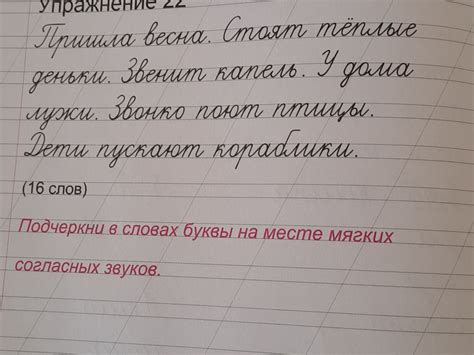 Упражнение 22
Пришла весна. Стоят тёплые
деньки. Звенит капель. У дома
лужи. Звонко поют птицы.
Дети пускают кораблики.
(16 слов)
Подчеркни в словах буквы на месте мягких
согласных звуков.